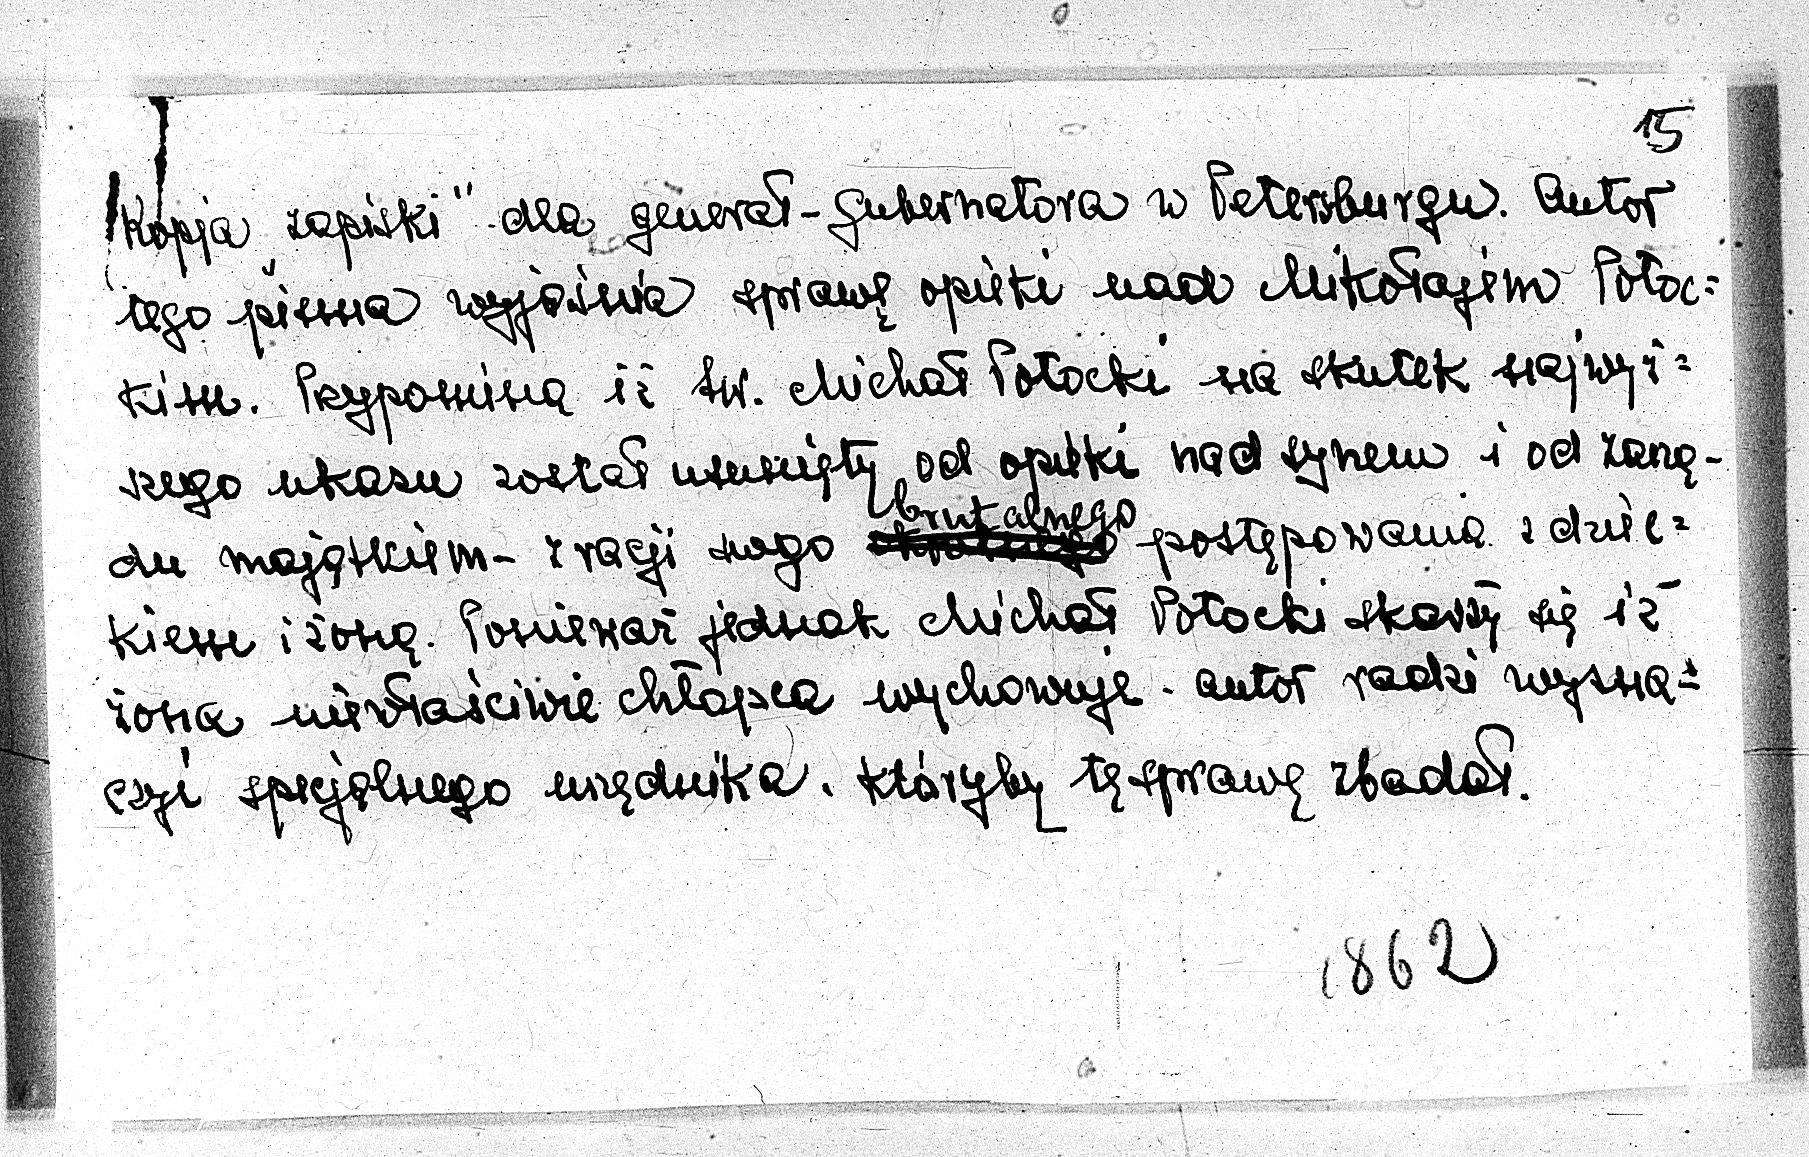 15
Kopja "zapiski" dla generał-gubernatora w Petersburgu. Autor
tego pisma wyjaśnia sprawę opieki nad Mikołajem Potoc=
kim. Przypomina iż hr. Michał Potocki na skutek najwyż=
szego ukazu został usunięty od opieki nad synem i od zarzą-
du majątkiem - z racji swego brutalnego postępowania z dziec=
kiem i żoną. Ponieważ jednak Michał Potocki skarży się iż
żona niewłaściwie chłopca wychowuje. autor radzi wyzna=
czyć specjalnego urzędnika. któryby tę sprawę zbadał.
1862